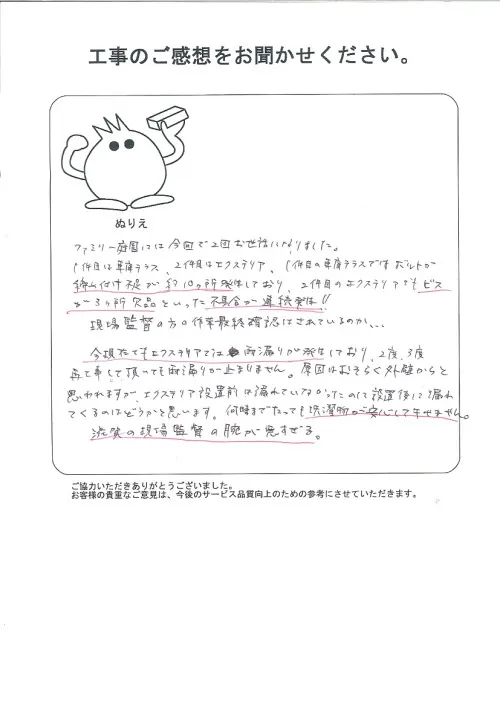 工事のご感想をお聞かせください。
ぬりえ
ファミリー庭園には今回で2回お世話になりました。
1件目は車庫テラス、2件目はエクステリア、1件目の車庫テラスではボルトが
締め付け不足が約10ヶ所発生しており、2件目のエクステリアでもビス
が3ヶ所欠品といった不具合が連続発生!!
現場監督の方の作業最終確認はされているのか、、、
今現在でもエクステリアでは雨漏りが発生しており、2度、3度
再工事して頂いても雨漏りが止まりません。原因はおそらく外壁からと
思われますが、エクステリア設置前は漏れていなかったのに設置後に漏れ
てくるのはどうかと思います。何時までたっても洗濯物が安心して干せません。
滋賀の現場監督の腕が悪すぎる。
ご協力いただきありがとうございました。
お客様の貴重なご意見は、今後のサービス品質向上のための参考にさせていただきます。